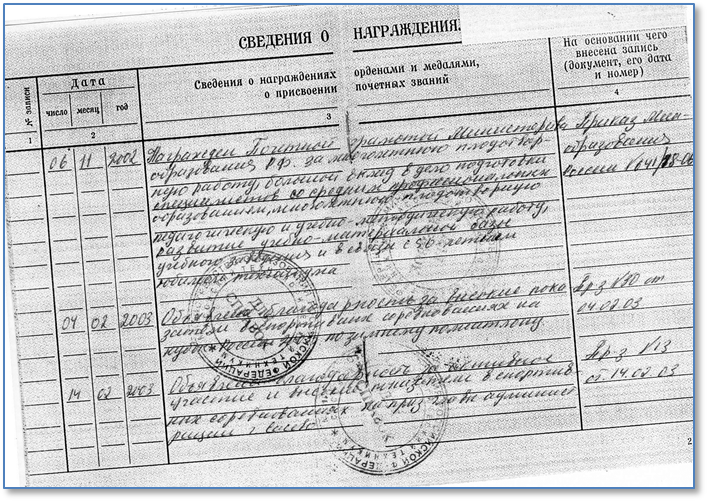 СВЕДЕНИЯ О НАГРАЖДЕНИЯ
№ записи
Дата
число месяц год
Сведения о награждениях орденами и медалями,
о присвоении почетных званий
На основании чего
внесена запись
(документ, его дата
и номер)
1 2 3 4
06 11 2002 Награжден Почетной грамотой Министерства
образования РФ за многолетнюю плодотвор-
ную работу, большой вклад в дело подготовки
специалистов со средним профессиональным
образованием, многолетнюю плодотворную
педагогическую и учебно-методическую работу,
развитие учебно-материальной базы
учебного заведения и в связи с 50-летним
юбилеем техникума
Приказ Мин-
образования
России
04 02 2003 Объявлена благодарность за высокие пока-
затели в спортивных соревнованиях на
по зимнему полиатлону
Пр-з №10 от
04.02.03
14 02 2003 Объявлена благодарность за активное
участие и высокие показатели в спортив-
ных соревнованиях на приз главы админист
рации г.
Пр-з №13
от 14.02.03
2